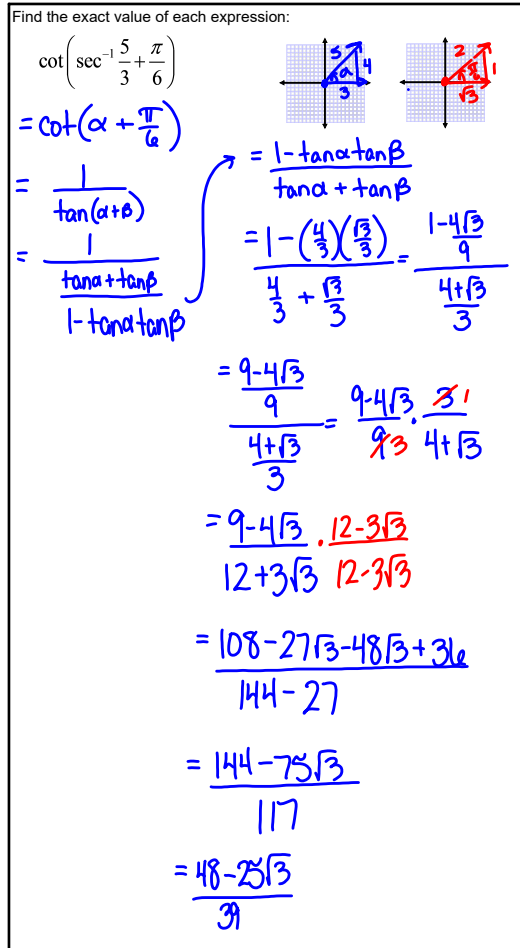 Find the exact value of each expression:
cot(sec⁻¹ 5/3 + π/6)
5 α 4
3
2 π/6 1
√3
= cot(α + π/6)
= 1/tan(α+β)
= 1/((tanα + tanβ)/(1 - tanα tanβ))
= (1 - tanα tanβ)/(tanα + tanβ)
= (1 - (4/3)(√3/3))/(4/3 + √3/3) = (1 - 4√3/9)/((4+√3)/3)
= ((9-4√3)/9)/((4+√3)/3) = (9-4√3)/9 3 · 3 1/(4+√3)
= (9-4√3)/(12+3√3) · (12-3√3)/(12-3√3)
= (108 - 27√3 - 48√3 + 36)/(144 - 27)
= (144 - 75√3)/117
= (48 - 25√3)/39